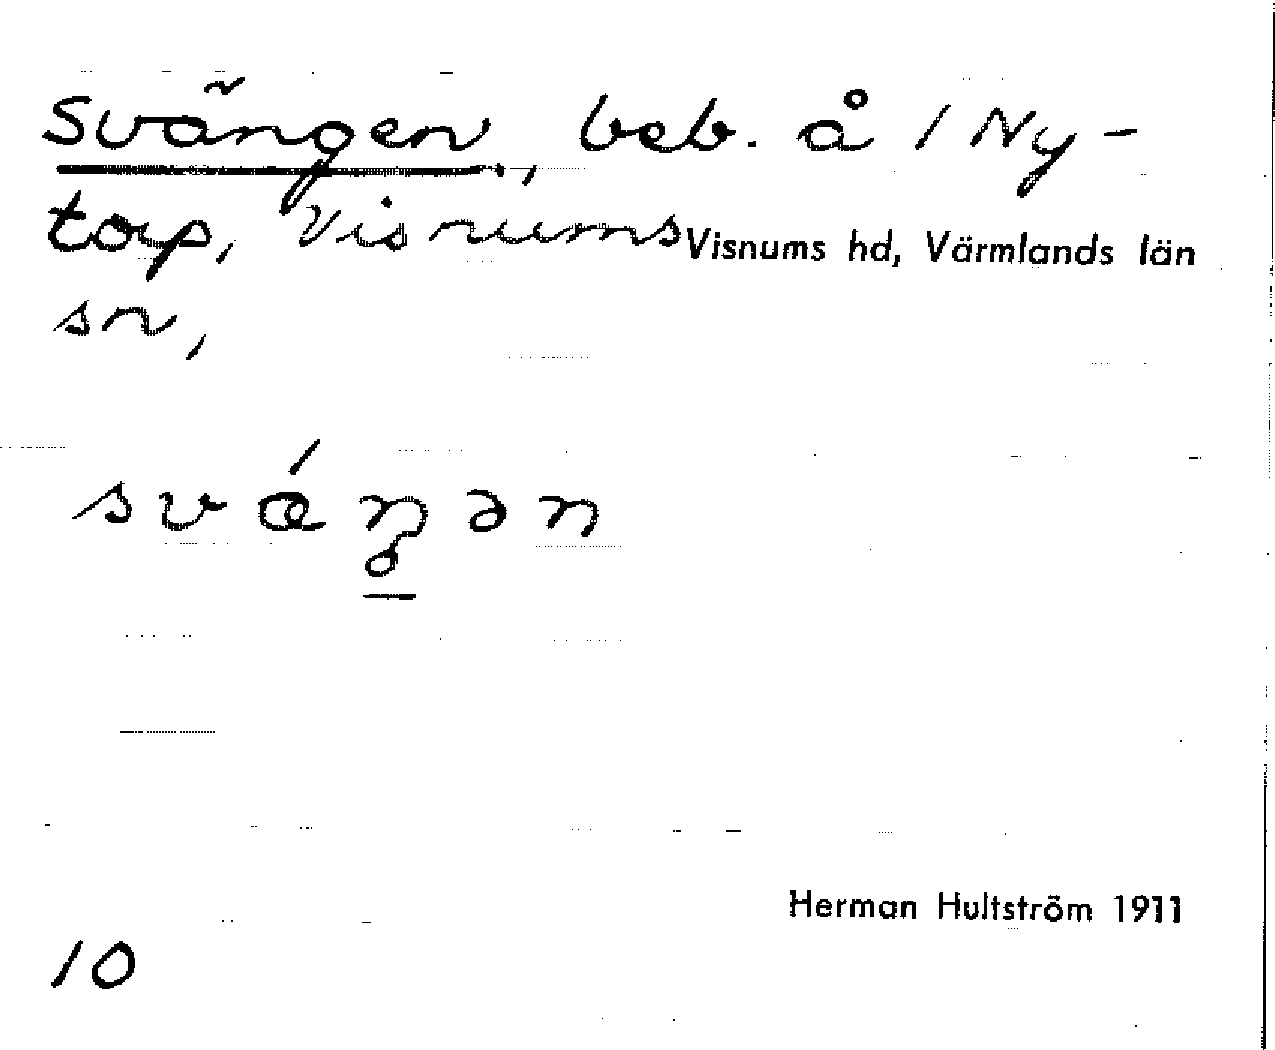 Svängen, beb. å 1 Ny-
torp, Visnums Visnums hd, Värmlands län
sn,
svǽŋən
Herman Hultström 1911
10